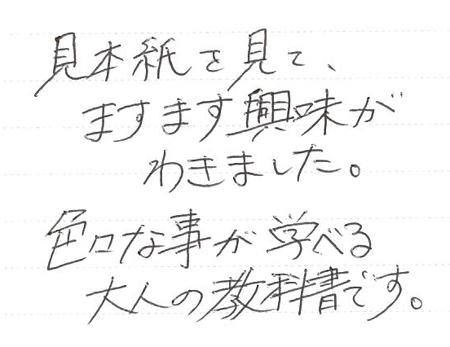 見本紙を見て、
ますます興味が
わきました。
色々な事が学べる
大人の教科書です。